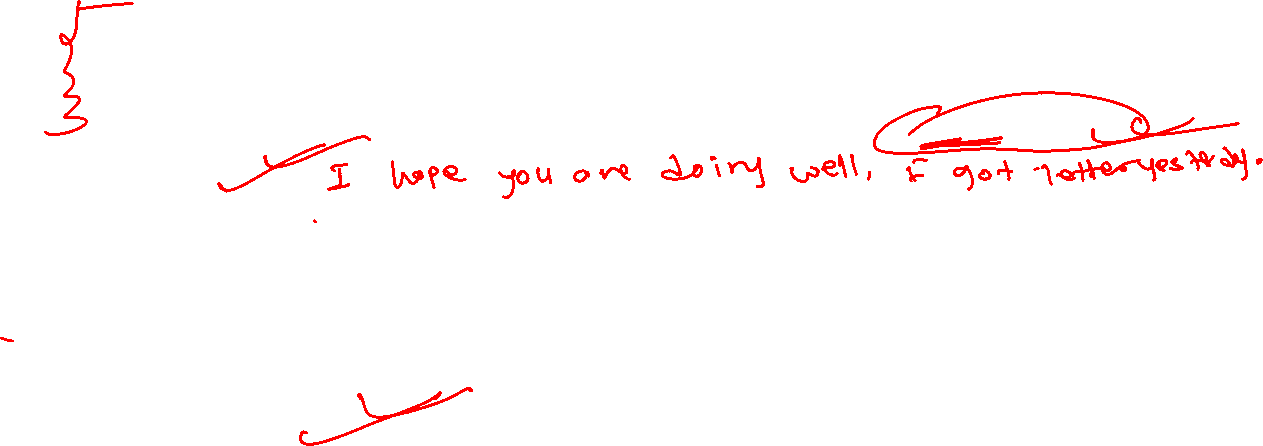 I hope you are doing well, I got letter yesterday.